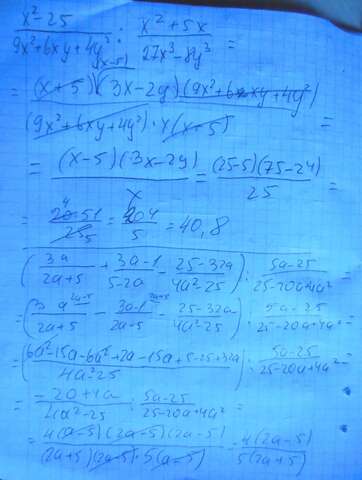 (x²-25)/(9x²+6xy+4y²) : (x²+5x)/(27x³-8y³) =
= (x-5)(x+5)(3x-2y)(9x²+6xy+4y²)/((9x²+6xy+4y²)·x(x+5)) =
= (x-5)(3x-2y)/x = (25-5)(75-24)/25 =
= 20·51/25 = 204/5 = 40,8
(3a/(2a+5) + (3a-1)/(5-2a) - (25-32a)/(4a²-25)) : (5a-25)/(25-20a+4a²)
= (3a/(2a+5) - (3a-1)/(2a-5) - (25-32a)/(4a²-25)) : (5a-25)/(25-20a+4a²) =
= (6a²-15a-6a²+2a-15a+5-25+32a)/(4a²-25) : (5a-25)/(25-20a+4a²) =
= (-20+4a)/(4a²-25) : (5a-25)/(25-20a+4a²) =
= 4(a-5)(2a-5)(2a-5)/((2a+5)(2a-5)·5(a-5)) = 4(2a-5)/(5(2a+5))